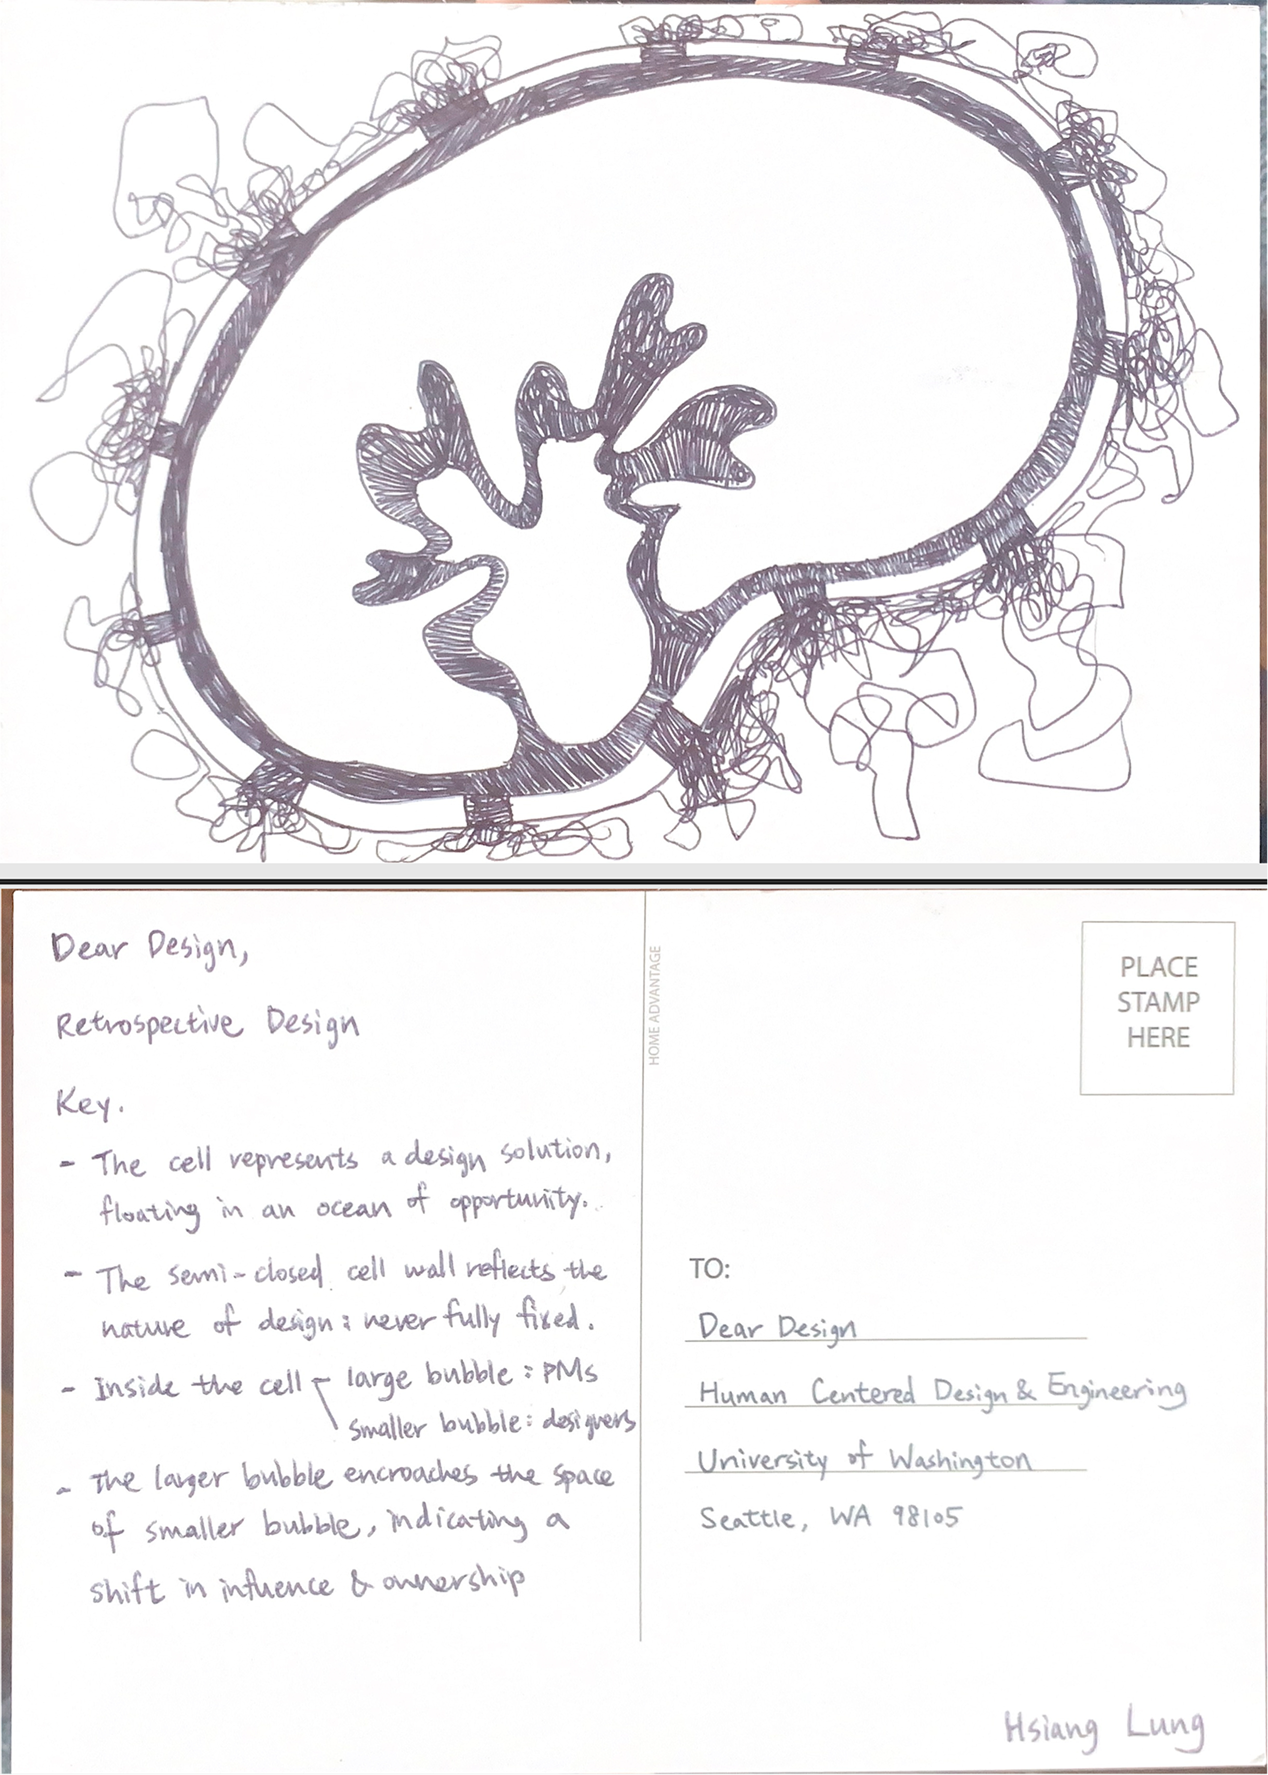 Dear Design,
Retrospective Design
Key.
- The cell represents a design solution,
floating in an ocean of opportunity.
- The semi-closed cell wall reflects the
nature of design: never fully fixed.
- Inside the cell - large bubble: PMs
\ smaller bubble: designers
- The larger bubble encroaches the space
of smaller bubble, indicating a
shift in influence & ownership
HOME ADVANTAGE
PLACE
STAMP
HERE
TO:
Dear Design
Human Centered Design & Engineering
University of Washington
Seattle, WA 98105
Hsiang Lung